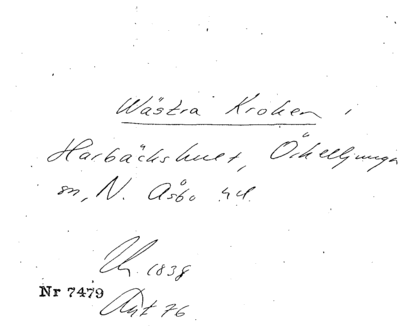 Wästra Kroken i
Harbäckshult, Örkelljunga
sn, N. Åsbo hd.
1838
Nr 7479
Ant 76